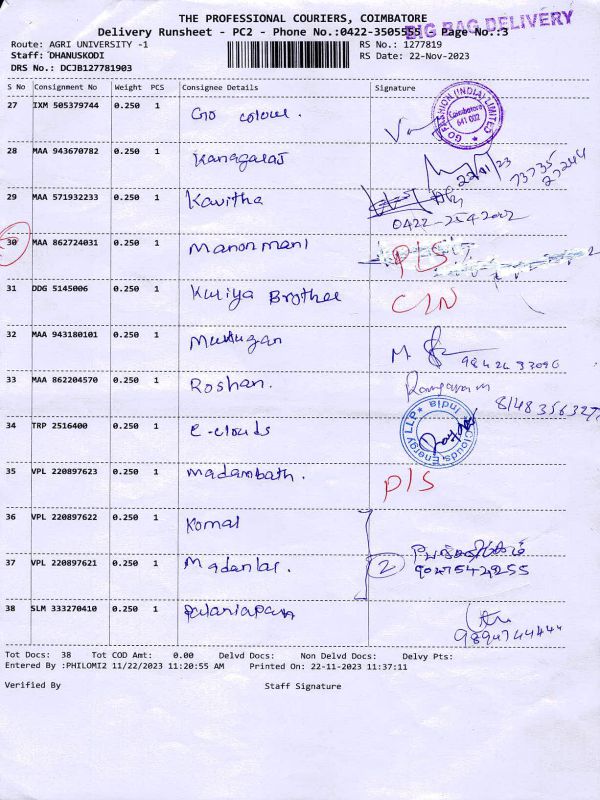 THE PROFESSIONAL COURIERS, COIMBATORE
BIG BAG DELIVERY
Delivery Runsheet - PC2 - Phone No.:0422-3505555 Page No.:3
Route: AGRI UNIVERSITY -1 RS No.: 1277819
Staff: DHANUSKODI RS Date: 22-Nov-2023
DRS No.: DCJB127781903
S No Consignment No Weight PCS Consignee Details Signature
27 IXM 505379744 0.250 1 Go colour.
GO FASHION (INDIA) LIMITED Coimbatore 641 002
28 MAA 943670782 0.250 1 Kanagaraj 22/11/23 73735 27244
29 MAA 571932233 0.250 1 Kavitha
0422-2542002
30 MAA 862724031 0.250 1 Manonmani PLS
31 DDG 5145006 0.250 1 Kuriya Brother CIN
32 MAA 943180101 0.250 1 Murugan M.
33 MAA 862204570 0.250 1 Roshan.
34 TRP 2516400 0.250 1 e-clouds
Clouds Energy LLP India
35 VPL 220897623 0.250 1 Madambath. PLS
36 VPL 220897622 0.250 1 Komal
37 VPL 220897621 0.250 1 Madanlal. 2
38 SLM 333270410 0.250 1
Tot Docs: 38 Tot COD Amt: 0.00 Delvd Docs: Non Delvd Docs: Delvy Pts:
Entered By :PHILOMI2 11/22/2023 11:20:55 AM Printed On: 22-11-2023 11:37:11
Verified By Staff Signature